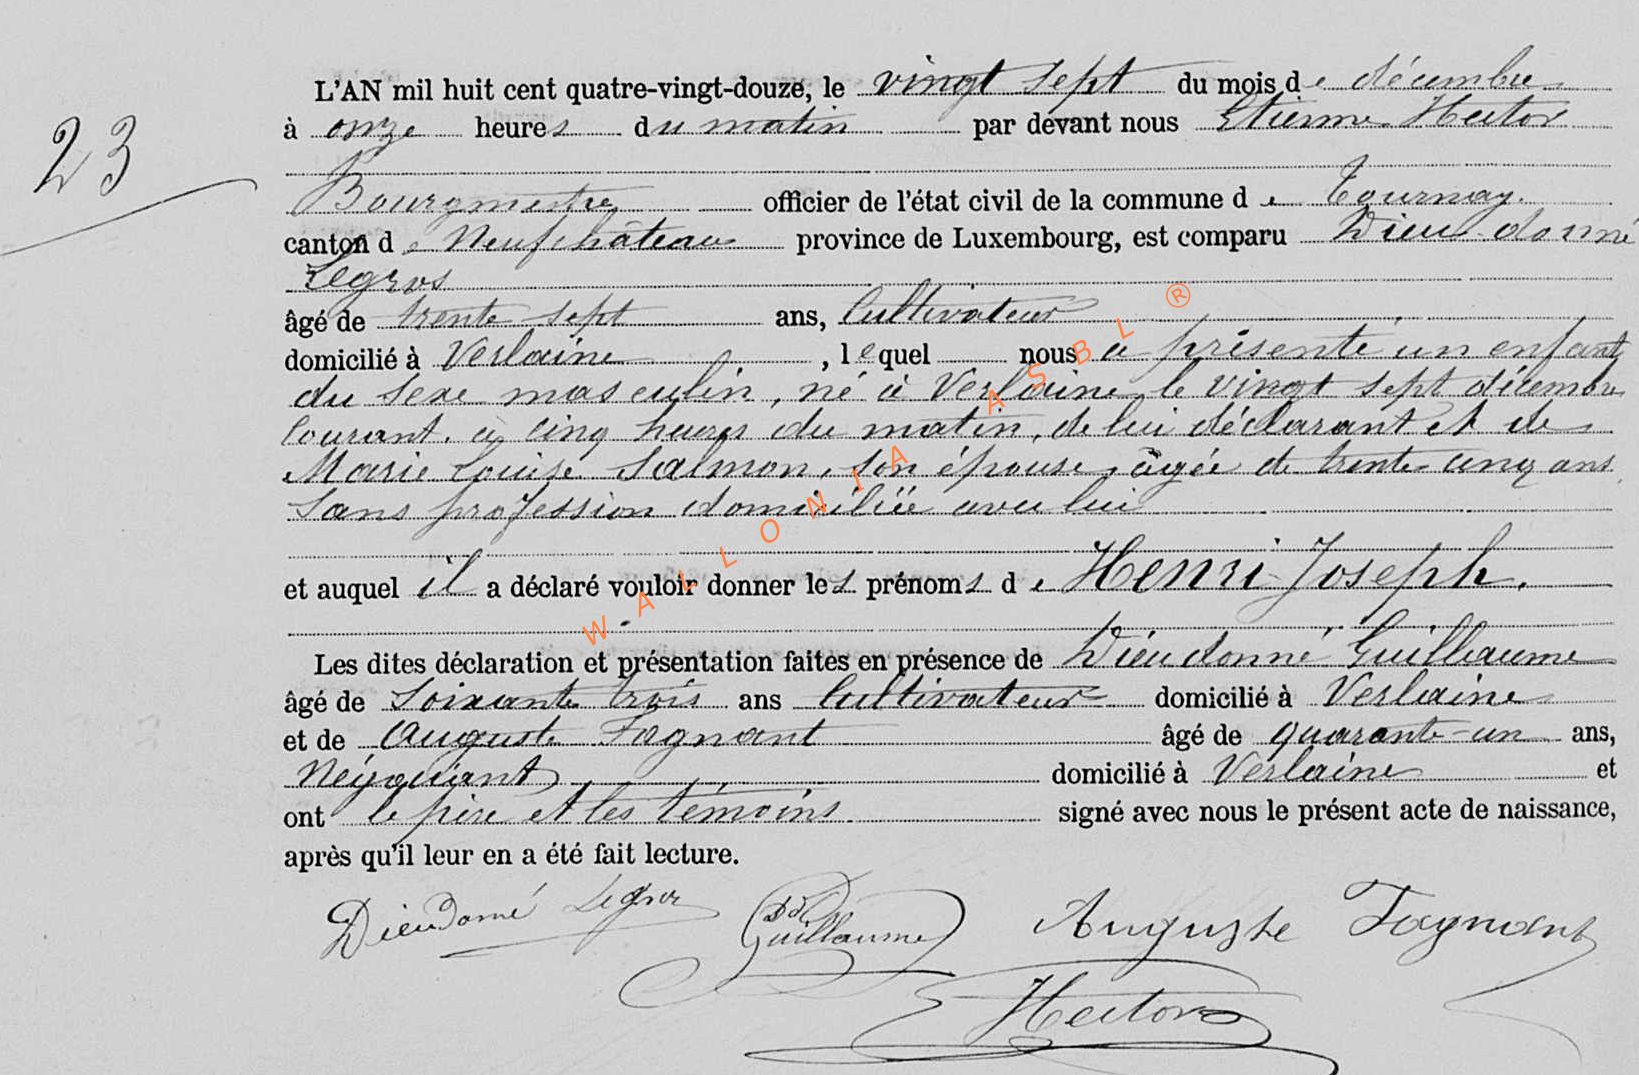 23
L'AN mil huit cent quatre-vingt-douze, le vingt sept du mois de décembre
à onze heures du matin par devant nous Etienne Hector
Bourgmestre officier de l'état civil de la commune de Tournay.
canton de Neufchâteau province de Luxembourg, est comparu Dieu donné
Legros
âgé de trente sept ans, Cultivateur
domicilié à Verlaine, lequel nous a présenté un enfant
du sexe masculin, né à Verlaine le vingt sept décembre
courant, à cinq heures du matin, de lui déclarant et de
Marie Louise Salmon, son épouse, âgée de trente cinq ans
sans profession domiciliée avec lui
et auquel il a déclaré vouloir donner les prénoms de Henri Joseph.
Les dites déclaration et présentation faites en présence de Dieudonné Guillaume
âgé de soixante trois ans Cultivateur domicilié à Verlaine
et de Auguste Fagnant âgé de quarante-un ans,
Négociant domicilié à Verlaine et
ont le père et les témoins signé avec nous le présent acte de naissance,
après qu'il leur en a été fait lecture.
Dieudonné Legros Dd Guillaume Auguste Fagnant
E Hector
WALLONIA ASBL ®